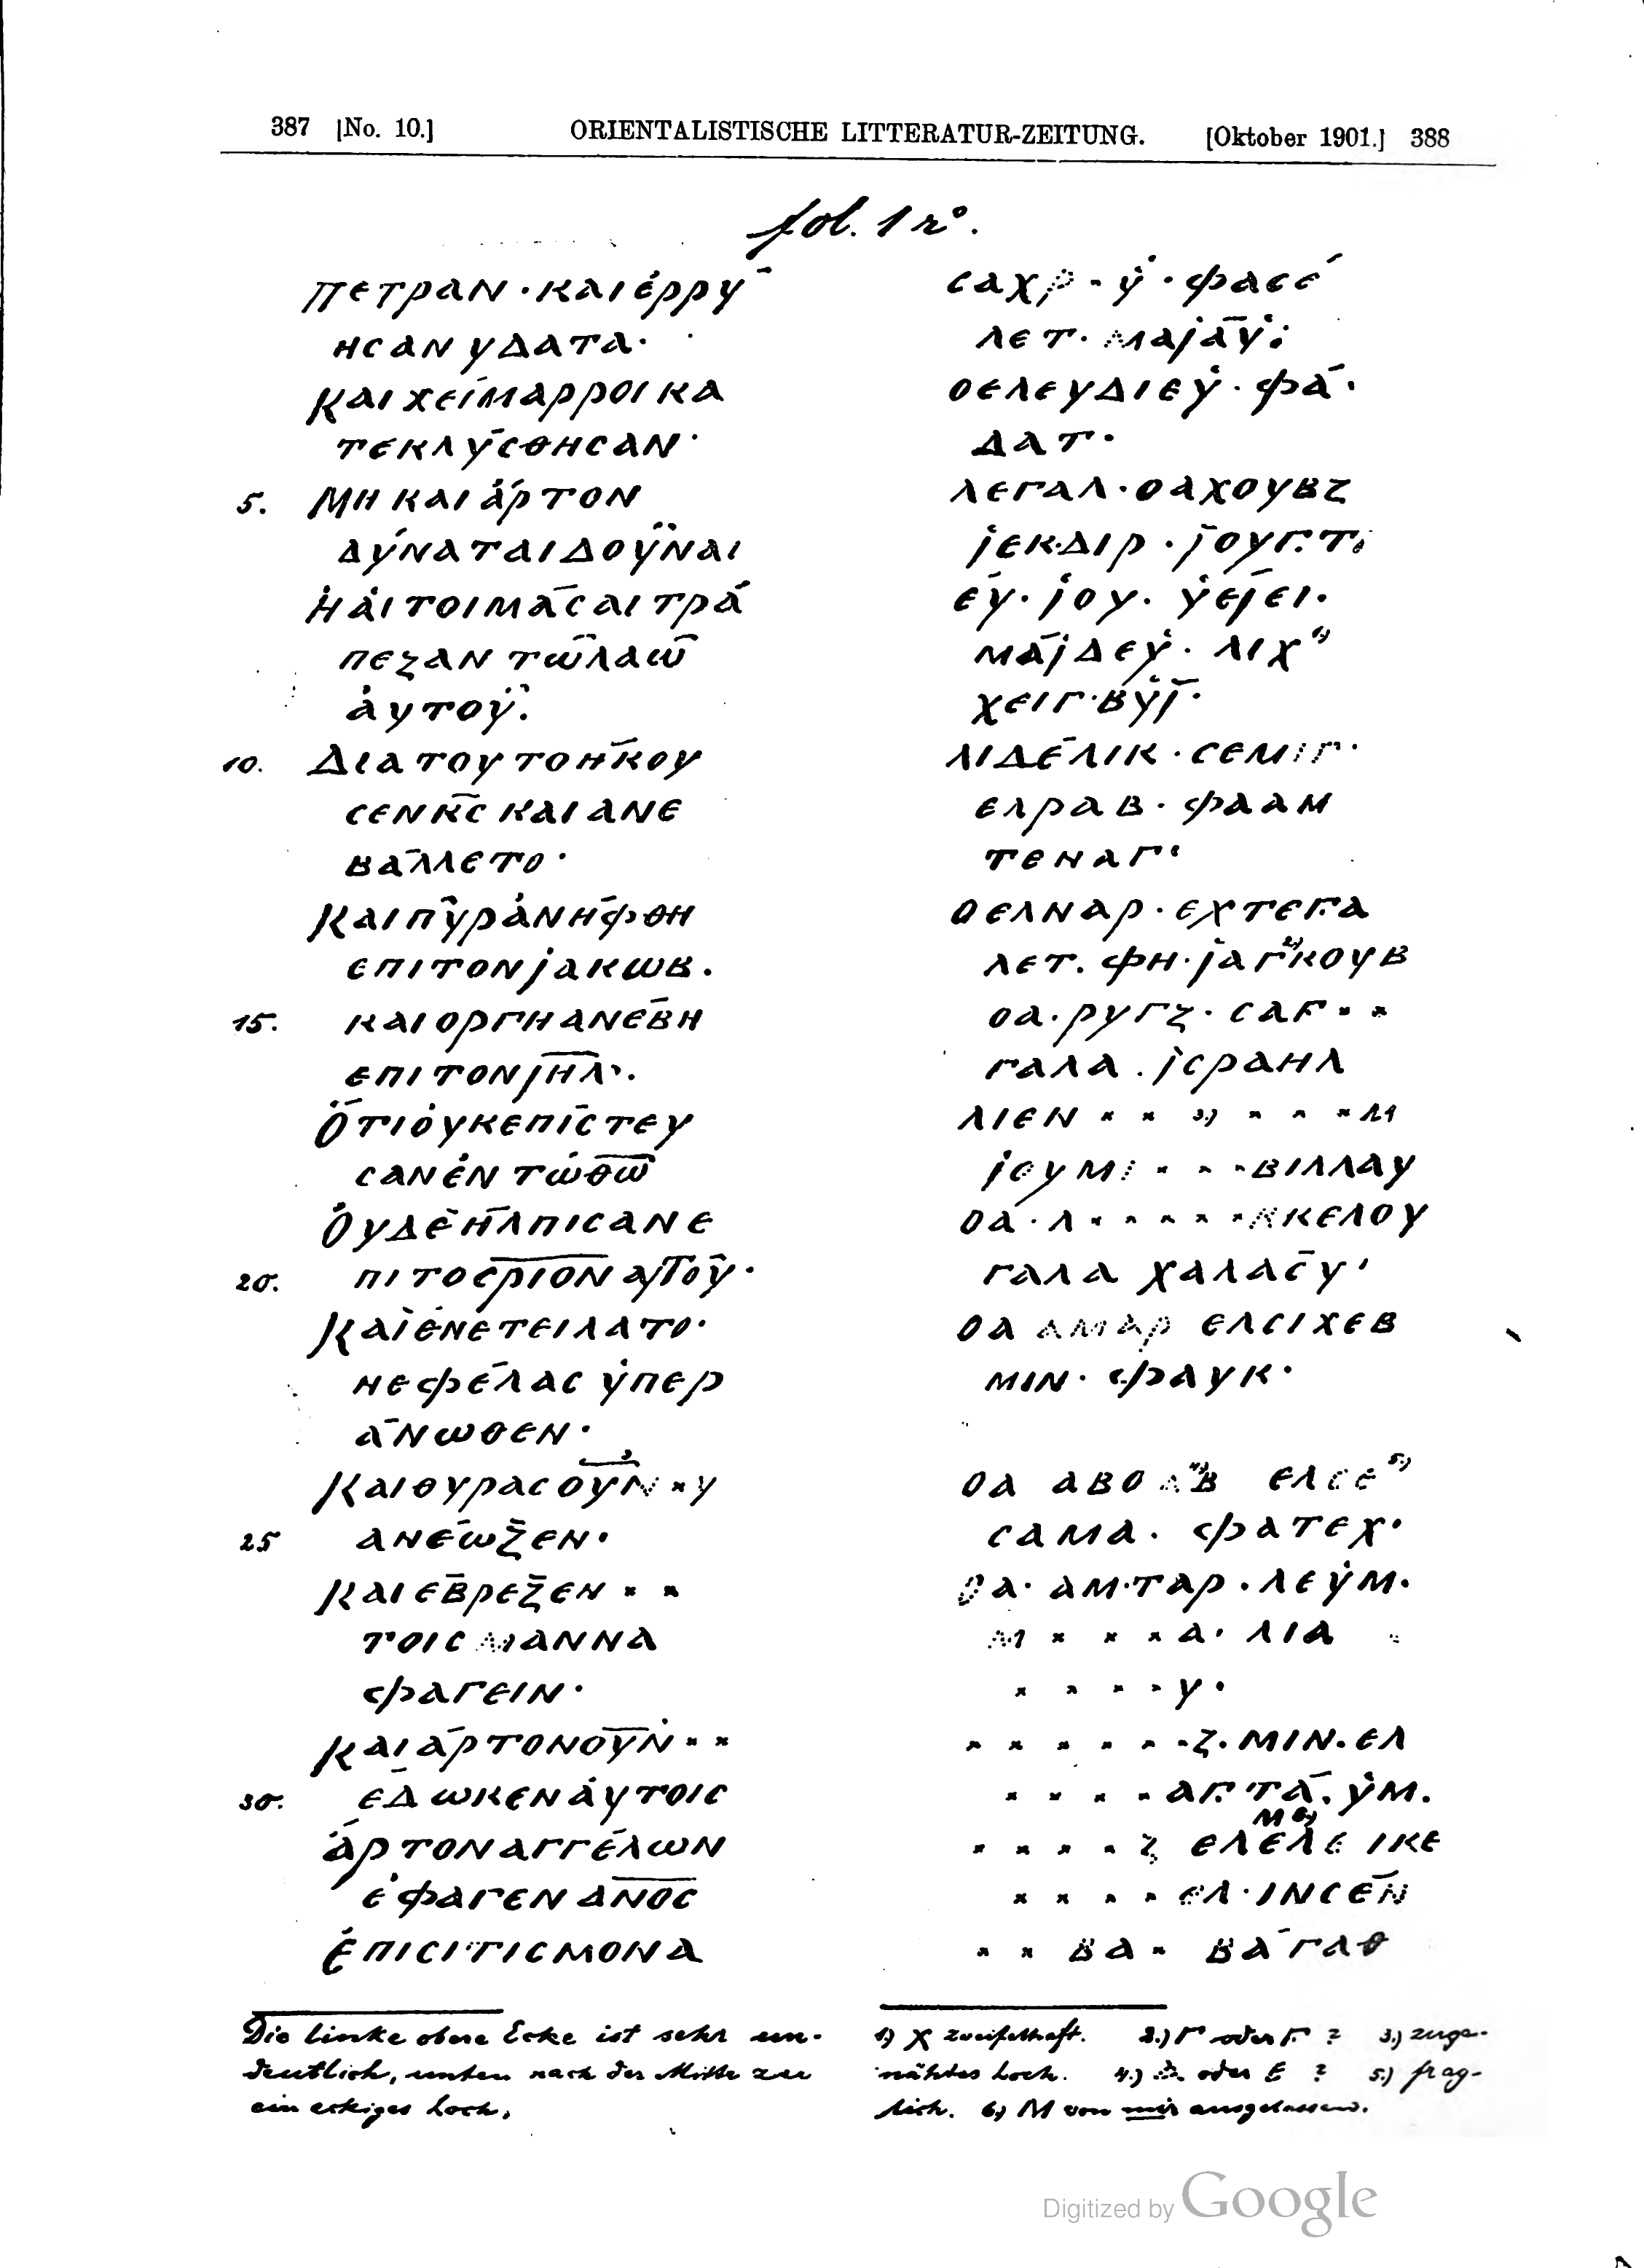 387 [No. 10.] ORIENTALISTISCHE LITTERATUR-ZEITUNG. [Oktober 1901.] 388
fol. 1 r°.
ΠΕΤΡΑΝ · ΚΑΙ ἐΡΡΥ
ΗСΑΝ ΥΔΑΤΑ·
ΚΑΙ ΧΕίΜΑΡΡΟΙ ΚΑ
ΤΕΚΛΎСΘΗСΑΝ·
5. ΜΗ ΚΑΙ ἄΡΤΟΝ
ΔΎΝΑΤΑΙ ΔΟΥ͂ΝΑΙ
Ἠ ἁΙΤΟΙΜάСΑΙ ΤΡά
ΠΕΖΑΝ Τῶ ΛΑῶ
ἀΥΤΟΥ͂.
10. ΔΙΑ ΤΟΥΤΟ Ή́ΚΟΥ
СΕΝ Κ̅С̅ ΚΑΙ ΑΝΕ
ΒάΛΛΕΤΟ·
ΚΑΙ ΠΥ͂Ρ ἀΝΉΦΘΗ
ΕΠΙ ΤΟΝ ϳΑΚωΒ.
15. ΚΑΙ ΟΡΓΗ ΑΝέΒΗ
ΕΠΙ ΤΟΝ ϳ̅Η̅Λ̅·.
Ὅ́ΤΙ ὀΥΚ ΕΠίСΤΕΥ
СΑΝ ἐΝ Τω̇ Θ̅ω̅
ὈΥΔὲ Ή́ΛΠΙСΑΝ Ε
20. ΠΙ ΤΟ С̅Ρ̅Ι̅Ο̅Ν̅ ΑΥΤΟΥ͂·
ΚΑῚ ἐΝΕΤΕΙΛΑΤΟ·
ΝΕΦέΛΑС ὑΠΕΡ
άΝωΘΕΝ·
ΚΑΙ ΘΥΡΑС Ο̅Υ̅Ν̅ × Υ
25 ΑΝέωΞΕΝ·
ΚΑΙ ΕΒΡΕΞΕΝ × ×
ΤΟΙС ΜΑΝΝΑ
ΦΑΓΕΙΝ·
ΚΑΙ άΡΤΟΝ Ο̅Υ̅Ν̅ × ×
30. ΕΔωΚΕΝ ἀΥΤΟΙС
ἄΡΤΟΝ ΑΓΓέΛωΝ
ἐΦΑΓΕΝ Α̅Ν̅Ο̅С̅
ἘΠΙСΙΤΙСΜΟΝ Α
СΑΧΡ · Υ̇ · ΦΑСέ
ΛΕΤ · ΜΑϳάΥ̇:
ΟΕΛΕΥΔΙΕΥ̇ · Φά·
ΔΑΤ·
ΛΕΓΑΛ · ΟΑΧΟΥΒΖ
ϳΕΚ·ΔΙΡ · ϳΟΥΓ·Τ·
ΕΎ · ϳΟΥ · Υ̇ΕϳΕΙ·
ΜάϳΔΕΥ̇ · ΛΙΧ¹⁾
ΧΕΙΓ·ΒΥ̇ϳ·
ΛΙΔέΛΙΚ · СΕΜΙΓ·
ΕΛΡΑΒ · ΦΑΑΜ
ΤΕΝΑΓ·
ΟΕΛΝΑΡ · ΕΧΤΕΓ·Α
ΛΕΤ. ΦΗ · ϳΑΓ²⁾ΚΟΥΒ
ΟΑ · ΡΥΓΖ · САΓ × ×
ΓΑΛΑ . ϳСΡΑΗΛ
ΛΙΕΝ × × ³⁾ × × × Μ
ϳΟΥΜ: × × × ΒΙΛΛΑΥ
ΟΑ · Λ × × × × × ΚΚΕΛΟΥ
ΓΑΛΑ ΧΑΛΑСΥ·
ΟΑ ΑΜΑΡ ΕΛСΙΧΕΒ
ΜΙΝ · ΦΑΥΚ·
ΟΑ ΑΒΟΑ⁴⁾Β ΕΛСΕ⁵⁾
САΜΑ . ΦΑΤΕΧ·
ΟΑ · ΑΜ·ΤΑΡ · ΛΕΥ̇Μ·
Μ × × × Α · ΛΙΑ
× × × × Υ·
× × × × × × Ζ · ΜΙΝ · ΕΛ
× × × × ΑΓ·Τά. Υ̇Μ.
Μ⁶⁾
× × × × Ζ ΕΛέΛΕ ΙΚΕ
× × × × ΕΛ · ΙΝСέΝ
× × ΒΑ × ΒάΓΑΘ
Die linke obere Ecke ist sehr un-
deutlich, unten nach der Mitte zu
ein eckiges Loch.
1) Χ zweifelhaft. 2.) Γ oder Γ· ? 3.) zuge-
nähtes Loch. 4.) Α oder Ε ? 5.) frag-
lich. 6.) Μ von mir ausgelassen.
Digitized by Google